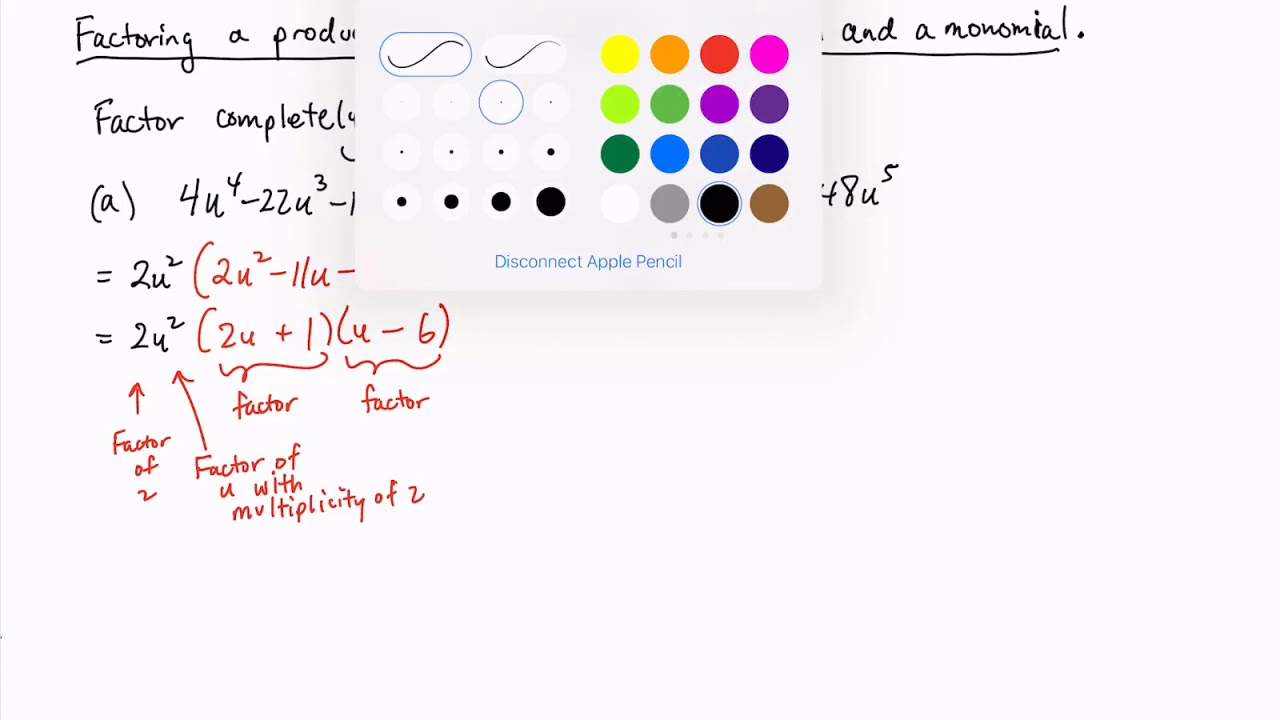 Factoring a produ and a monomial.
Factor completely
(a) 4u⁴-22u³-1 48u⁵
= 2u² (2u²-11u-
= 2u² (2u + 1)(u - 6)
factor factor
Factor of 2
Factor of u with multiplicity of 2
Disconnect Apple Pencil